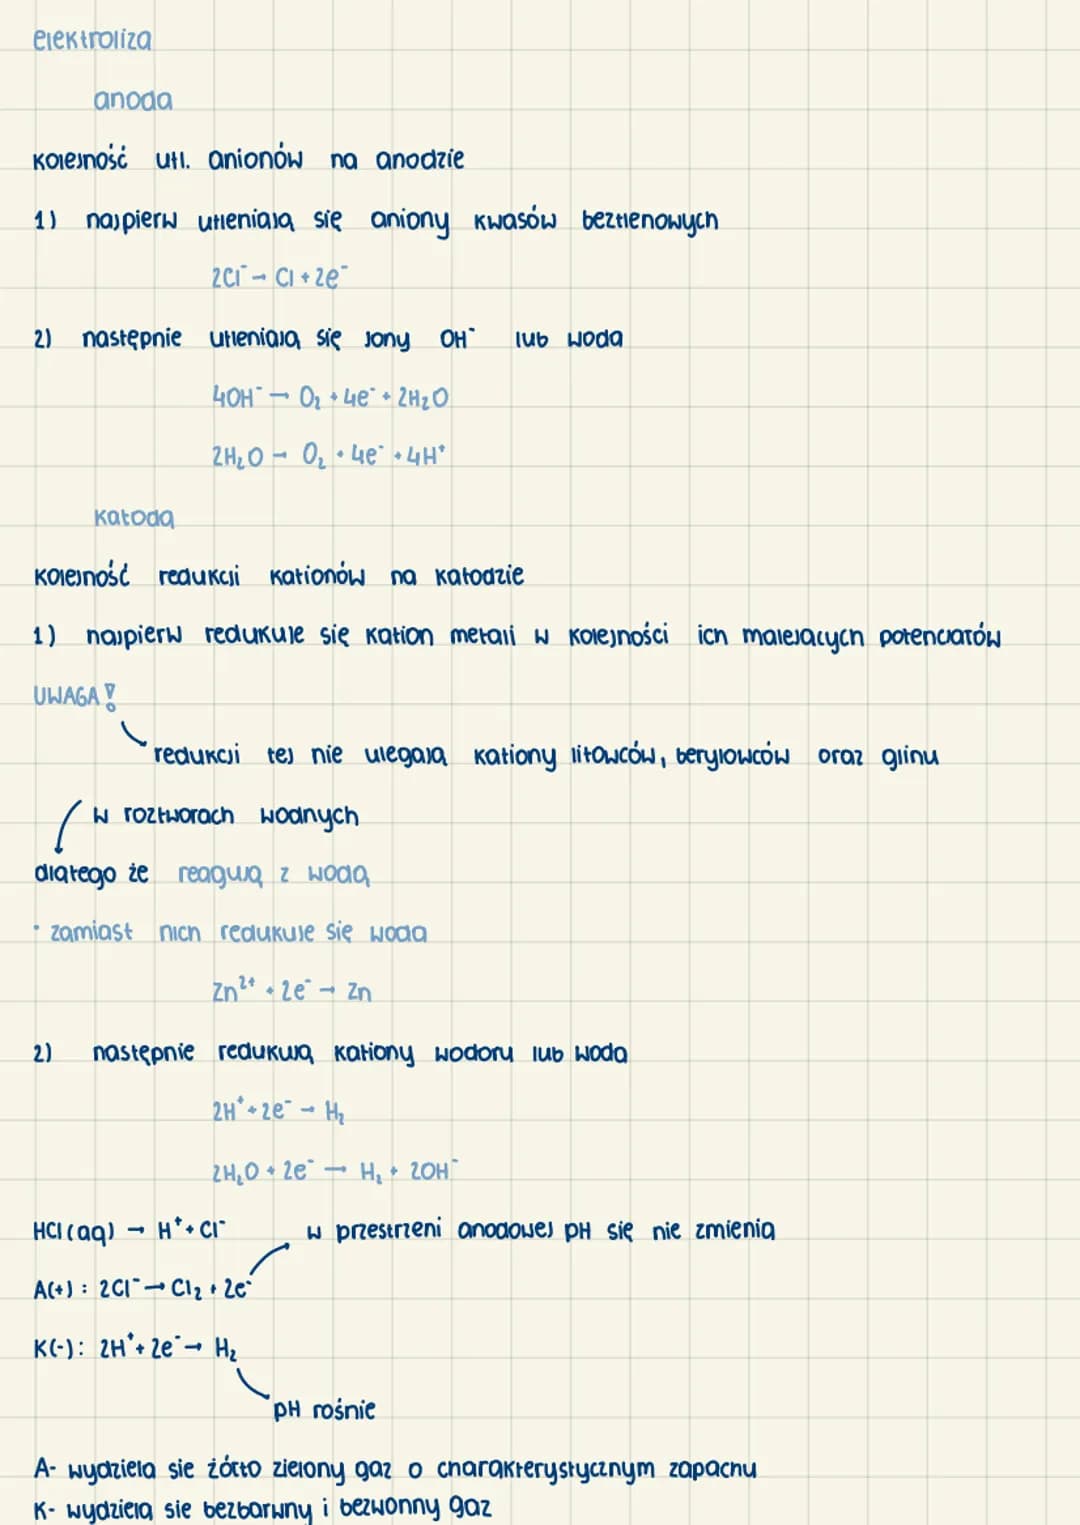 elektroliza
anoda
kolejność utl. anionów na anodzie
1) najpierw utleniają się aniony kwasów beztlenowych
2Cl⁻ → Cl + 2e⁻
2) następnie utleniają się jony OH⁻ lub woda
4OH⁻ → O₂ + 4e⁻ + 2H₂O
2H₂O → O₂ + 4e⁻ + 4H⁺
katoda
kolejność redukcji kationów na katodzie
1) najpierw redukuje się kation metali w kolejności ich malejących potencjałów
UWAGA!
redukcji tej nie ulegają kationy litowców, berylowców oraz glinu
w roztworach wodnych
dlatego że reagują z wodą
· zamiast nich redukuje się woda
Zn²⁺ + 2e⁻ → Zn
2) następnie redukują kationy wodoru lub woda
2H⁺ + 2e⁻ → H₂
2H₂O + 2e⁻ → H₂ + 2OH⁻
HCl (aq) → H⁺ + Cl⁻ w przestrzeni anodowej pH się nie zmienia
A(+) : 2Cl⁻ → Cl₂ + 2e⁻
K(-) : 2H⁺ + 2e⁻ → H₂
pH rośnie
A- wydziela sie żółto zielony gaz o charakterystycznym zapachu
K- wydziela sie bezbarwny i bezwonny gaz